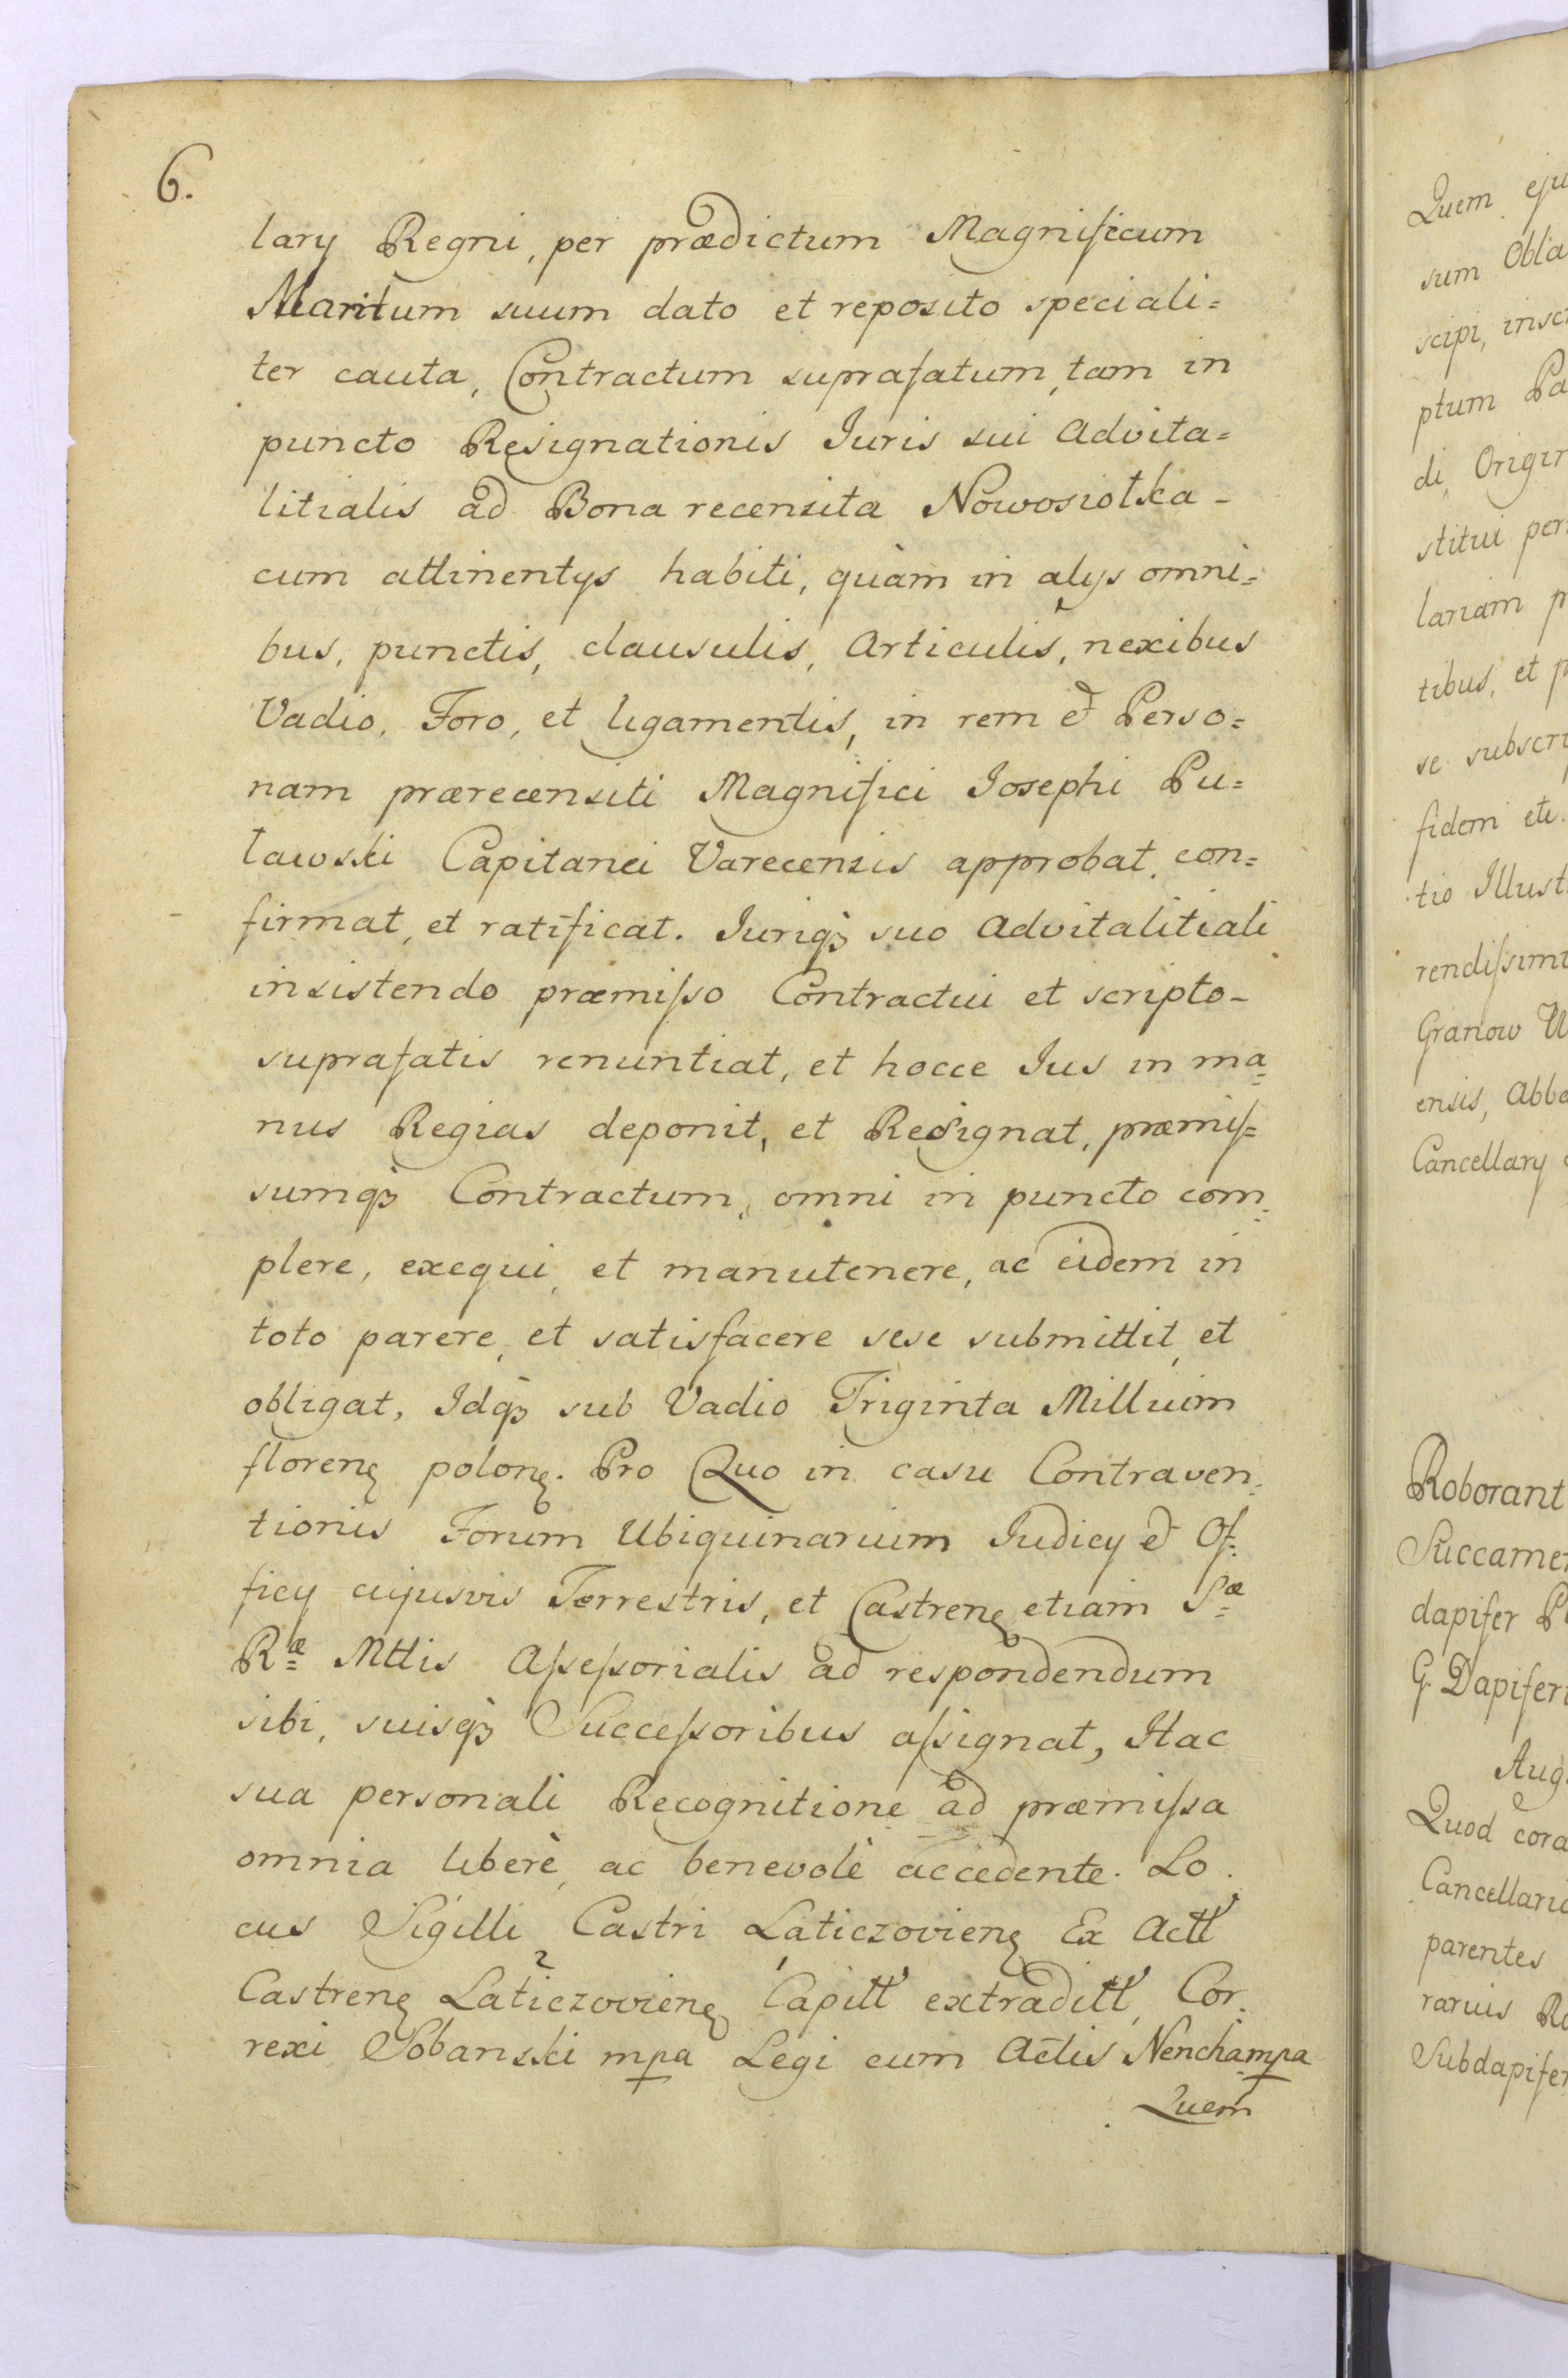 6.
lary Regni, per prædictum Magnificum
Maritum suum dato et reposito speciali=
ter cauta, Contractum suprafatum, tam in
puncto Resignationis Juris sui Advita=
litialis ad Bona recensita Nowosiołka -
cum attinentys habiti, quàm in alys omni=
bus, punctis, clausulis, Articulis, nexibus
Vadio, Foro, et ligamentis, in rem et Perso=
nam prærecensiti Magnifici Josephi Pu=
ławski Capitanei Varecensis approbat, con=
firmat, et ratificat. Juriqꝫ suo Advitalitiali
insistendo præmiſso Contractui et scripto-
suprafatis renuntiat, et hocce Jus in ma=
nus Regias deponit, et Resignat, præmiſ=
sumqꝫ Contractum, omni in puncto com=
plere, exequi, et manutenere, ac eidem in
toto parere, et satisfacere sese submittit, et
obligat, Idqꝫ sub Vadio Triginta Millium
floren polon. Pro Quo in casu Contraven=
tionis Forum Ubiquinarium Judicy et Of=
ficy cujusvis Terrestris, et Castren etiam Sæ
Ræ Mttis Aſseſsorialis ad respondendum
sibi, suisqꝫ Succeſsoribus aſsignat, Hac
sua personali Recognitione ad præmiſsa
omnia liberè, ac benevolè accedente. Lo.
cus Sigilli Castri Laticzovien Ex Actt
Castren Laticzovien Capitt extraditt, Cor.
rexi Sobanski mpa Legi cum Actis Nencha mpa
Quem
Quem
sum
scipi,
ptum
di,
stitui
lariam
tibus, et
se
fidem etc.
tio
rendiſsimi
Granow
ensis,
Cancellary
Roborant
dapifer
G. Dapiferi
Quod
parentes